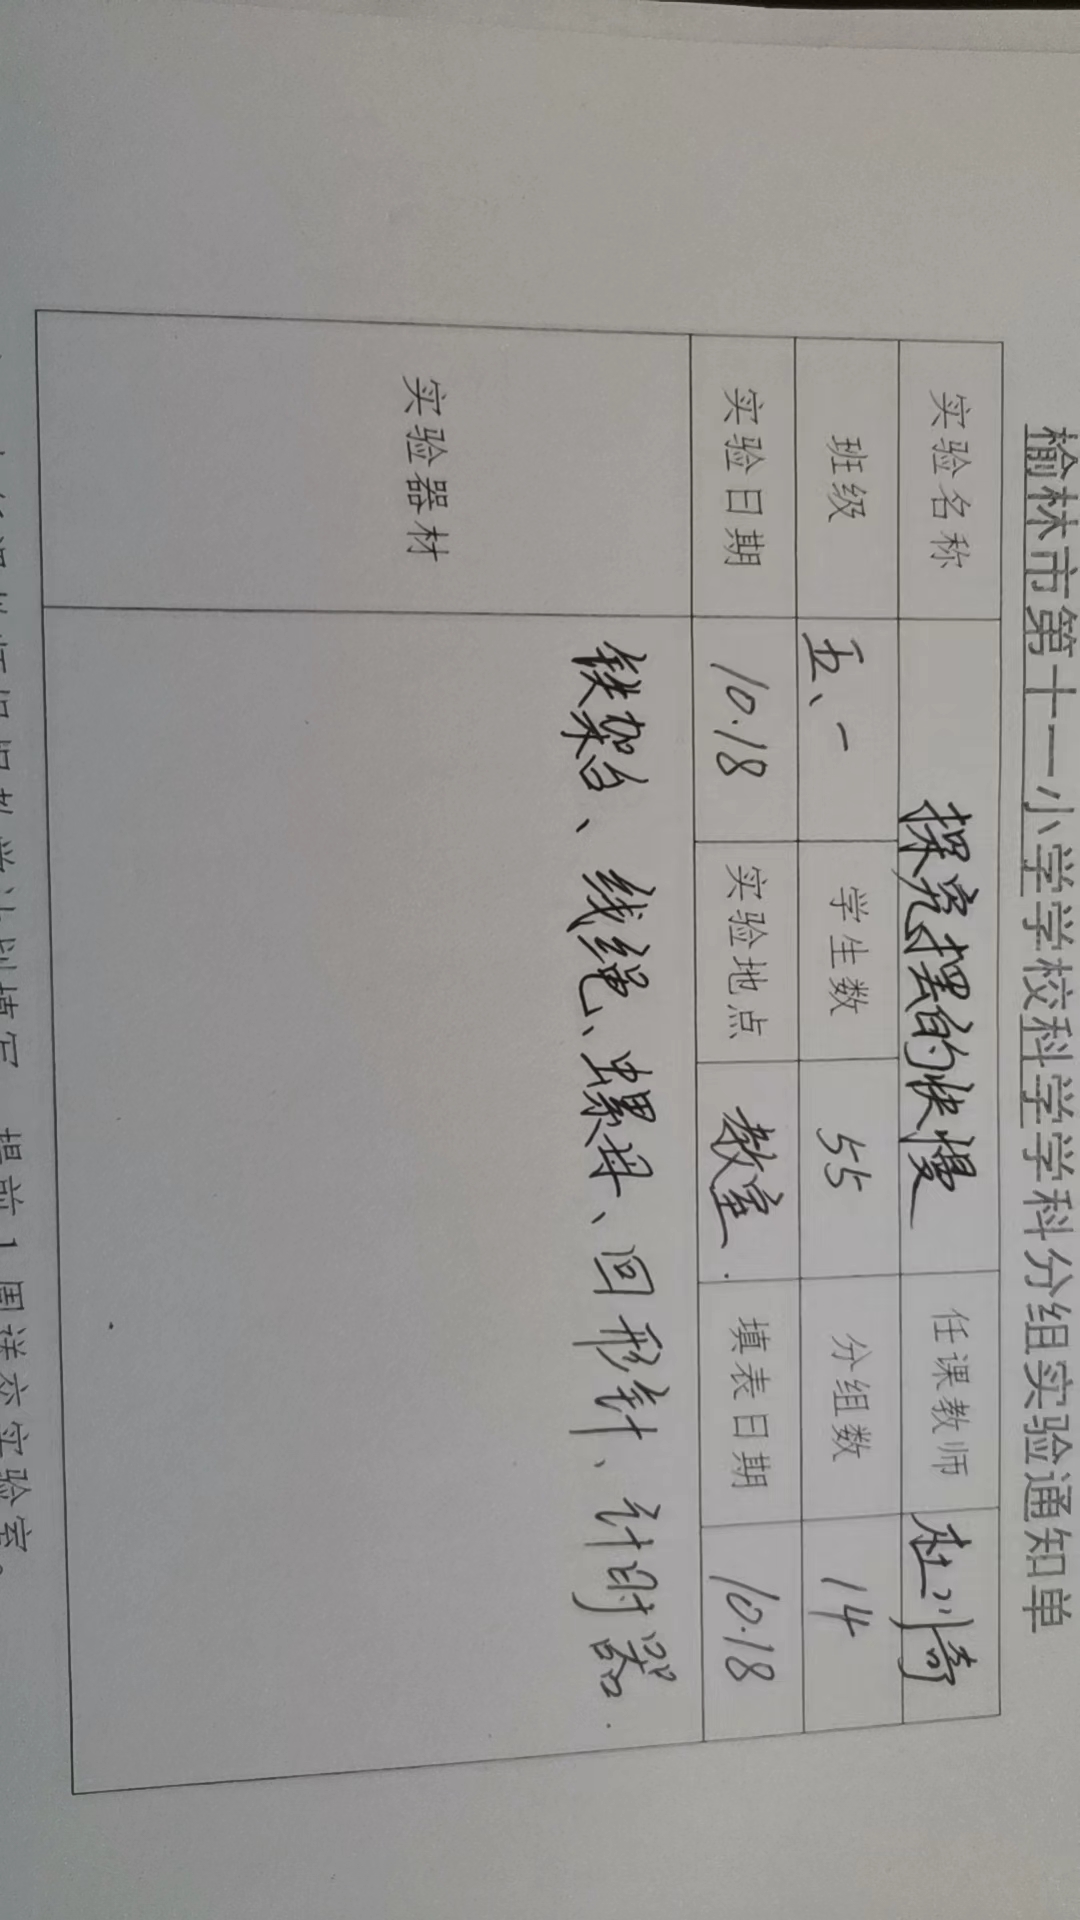 榆林市第十一小学学校科学学科分组实验通知单
实验名称 探究摆的快慢 任课教师
班级 五、一 学生数 55 分组数 14
实验日期 10.18 实验地点 教室. 填表日期 10.18
实验器材 铁架台、线绳、螺母、回形针、计时器.
提前1周送交实验室。